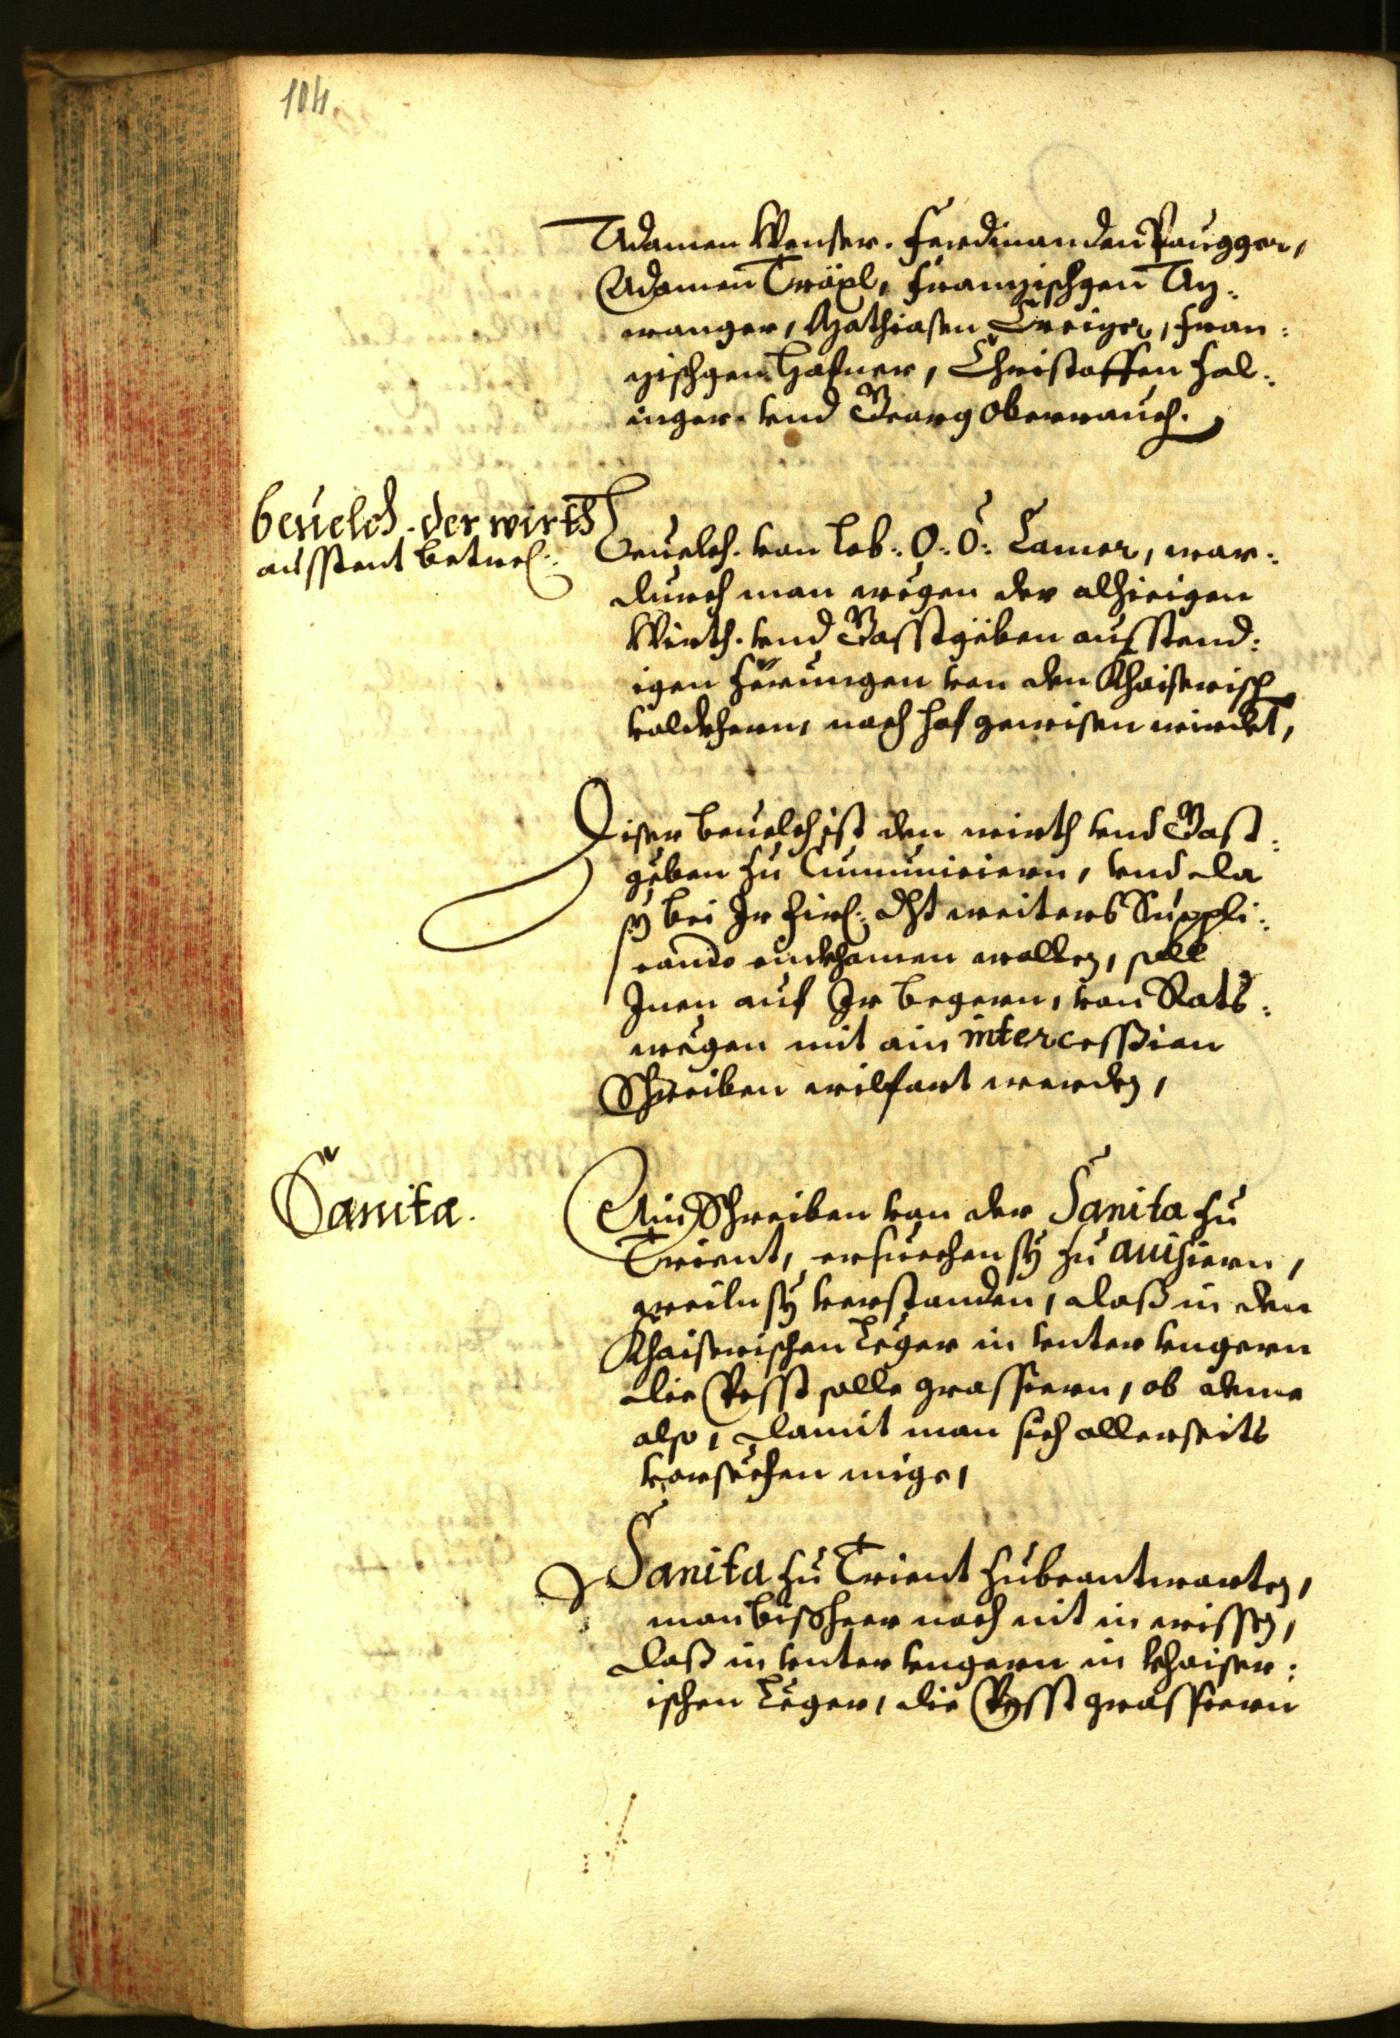 104
Adamen Wenser. Ferdinanden Paugger,
Adamen Träxl, Franzischgen An¬
wanger, Mathiasen Creizer, Fran¬
zischgen Hafner, Christoffen Hal¬
inger. vnd Georg Oberrauch.
Beuelch. der wirth
ausstent betref:
Beuelch. von Lob: O: Ö: Camer, war¬
durch man wegen der alhieigen
Wirth. vnd Gasstgëben ausstend¬
igen Zörungen von den Khaiserisch
volckhern, nach Hof gewisen wirdet,
Diser beuelch ist den wirth vnd Gast¬
geben zu Cumuniciern, vnd da
sy bei Ir Fürl: Dht weiters Suppli¬
cando einkhomen wollen, soll
Inen auf Ir begern, von Rats¬
wegen mit ain intercession
Schreiben wilfart werden,
Sanita.
Ain Schreiben von der Sanita zu
Trient, ersuechen sy zu auisiern,
weiln sy verstanden, daß in den
Khaiserischen Leger in vnter vngern
die Pesst solle grassiern, ob deme
also, damit man sich allerseits
vorsechen mige,
Sanita zu Trient zubeantworten,
man bißheer noch nit in wissen,
daß in vnter vngern in khaiser¬
ischen Leger, die Pesst grassiern